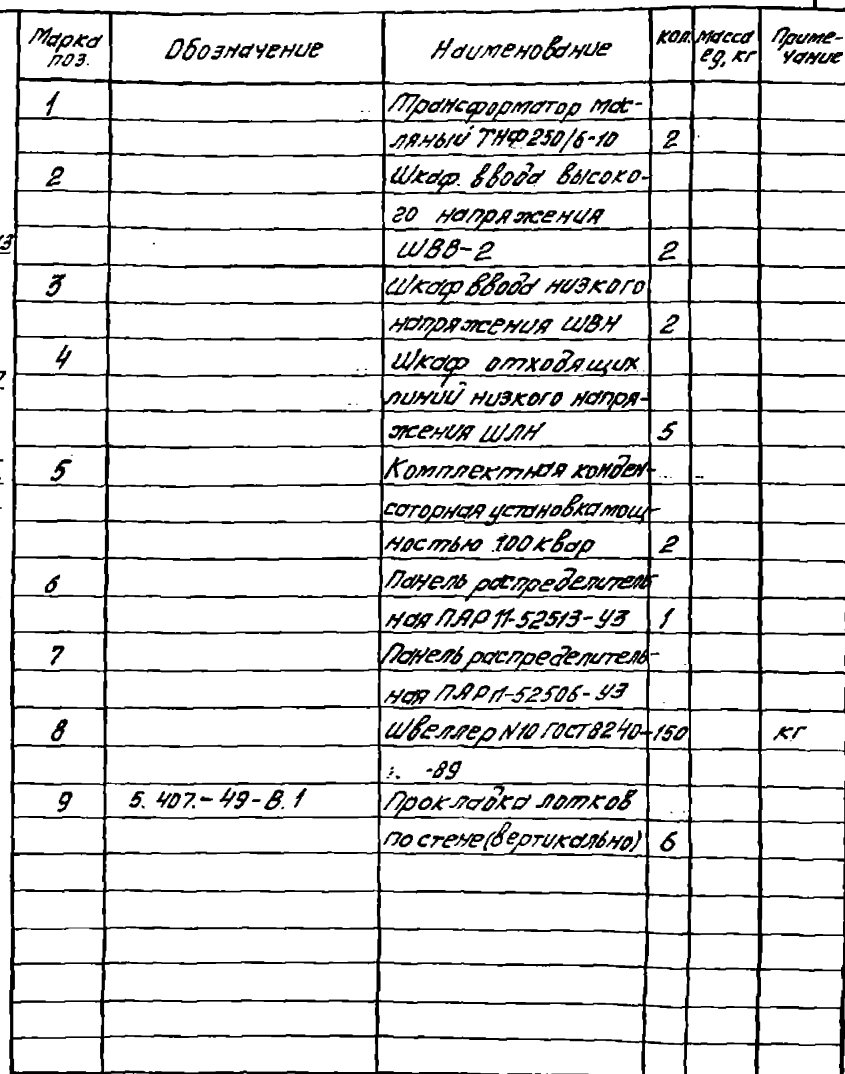 Марка поз. Обозначение Наименование Кол. Масса ед, кг Приме-чание
1 Трансформатор мас-
ляный ТНФ 250/6-10 2
2 Шкаф ввода высоко-
го напряжения
ШВВ-2 2
3 Шкаф ввода низкого
напряжения ШВН 2
4 Шкаф отходящих
линий низкого напря-
жения ШЛН 5
5 Комплектная конден-
саторная установка мощ-
ностью 100 квар 2
6 Панель распределитель-
ная ПАР 11-52513-У3 1
7 Панель распределитель-
ная ПАР 11-52506-У3
8 Швеллер N10 ГОСТ 8240- 150 кг
-89
9 5.407.-49-В.1 Прокладка лотков
по стене (вертикально) 6